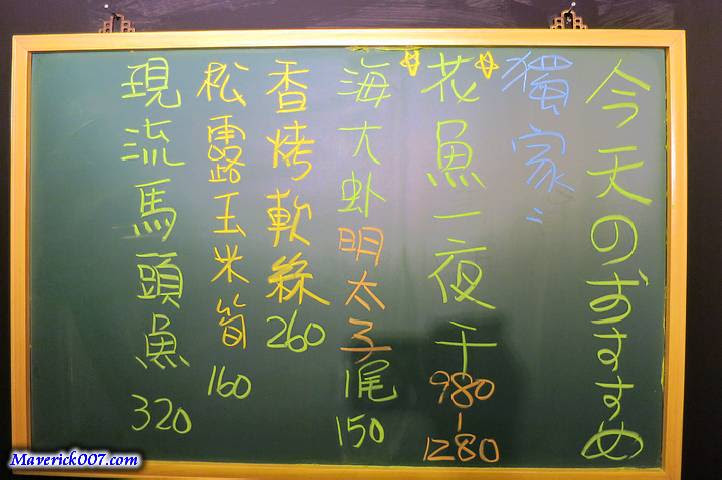 今天のおすすめ
獨家:
花魚一夜干 980-1280
海大虾明太子 1尾 150
香烤軟絲 260
松露玉米筍 160
現流馬頭魚 320
Maverick007.com